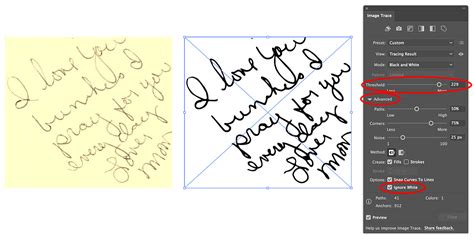 I love you
bunches &
pray for you
every day
Love
Mom
I love you
bunches &
pray for you
every day
Love
Mom
Image Trace
Preset: Custom
View: Tracing Result
Mode: Black and White
Threshold: 229
Less More
Advanced
Paths: 50%
Low High
Corners: 75%
Less More
Noise: 25 px
Method:
Create: Fills Strokes
Options: Snap Curves To Lines
Ignore White
Paths: 41 Colors: 1
Anchors: 812
Preview
Help us improve Image Trace. Share feedback.